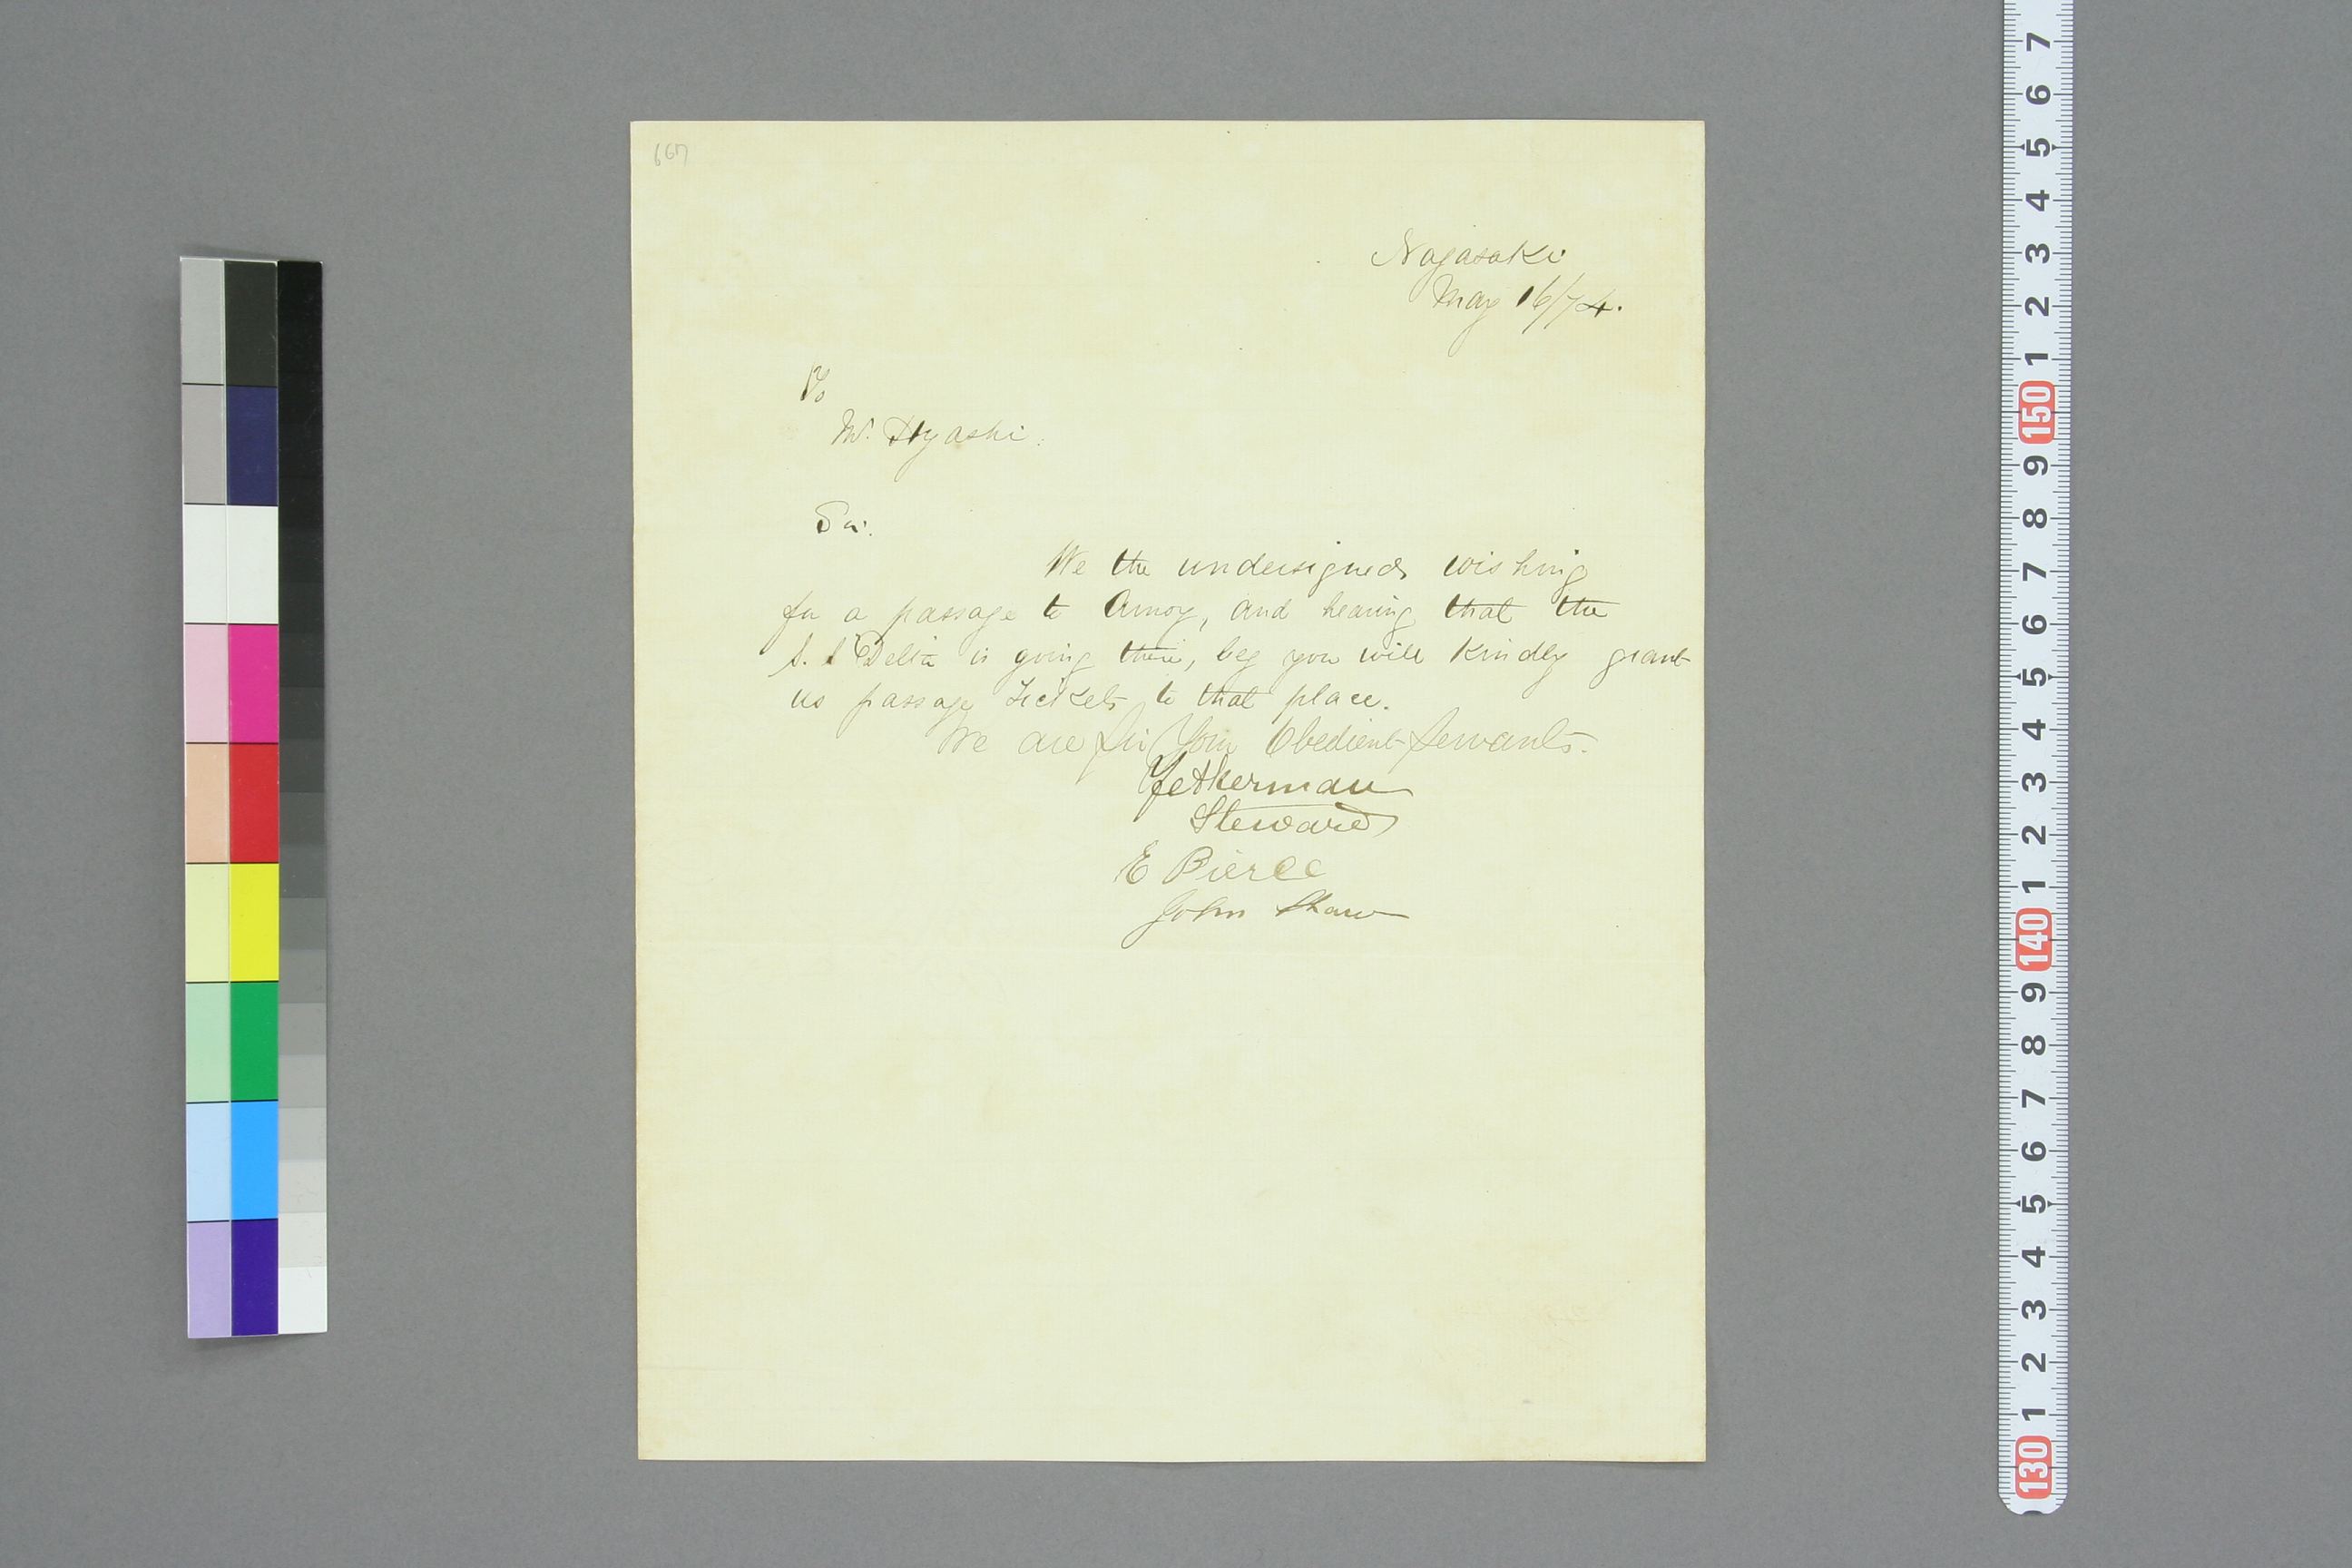 667
Nagasaki
May 16/74.
To
Mr. Hyashi.
Sir.
We the undersigned wishing
for a passage to Amoy, and hearing that the
S. S Delta is going there, beg you will kindly grant
us passage tickets to that place.
We are Sir Your Obedient Servants.
Steward
E Pierce
John Shaw
7
6
5
4
3
2
1
150
9
8
7
6
5
4
3
2
1
140
9
8
7
6
5
4
3
2
1
130